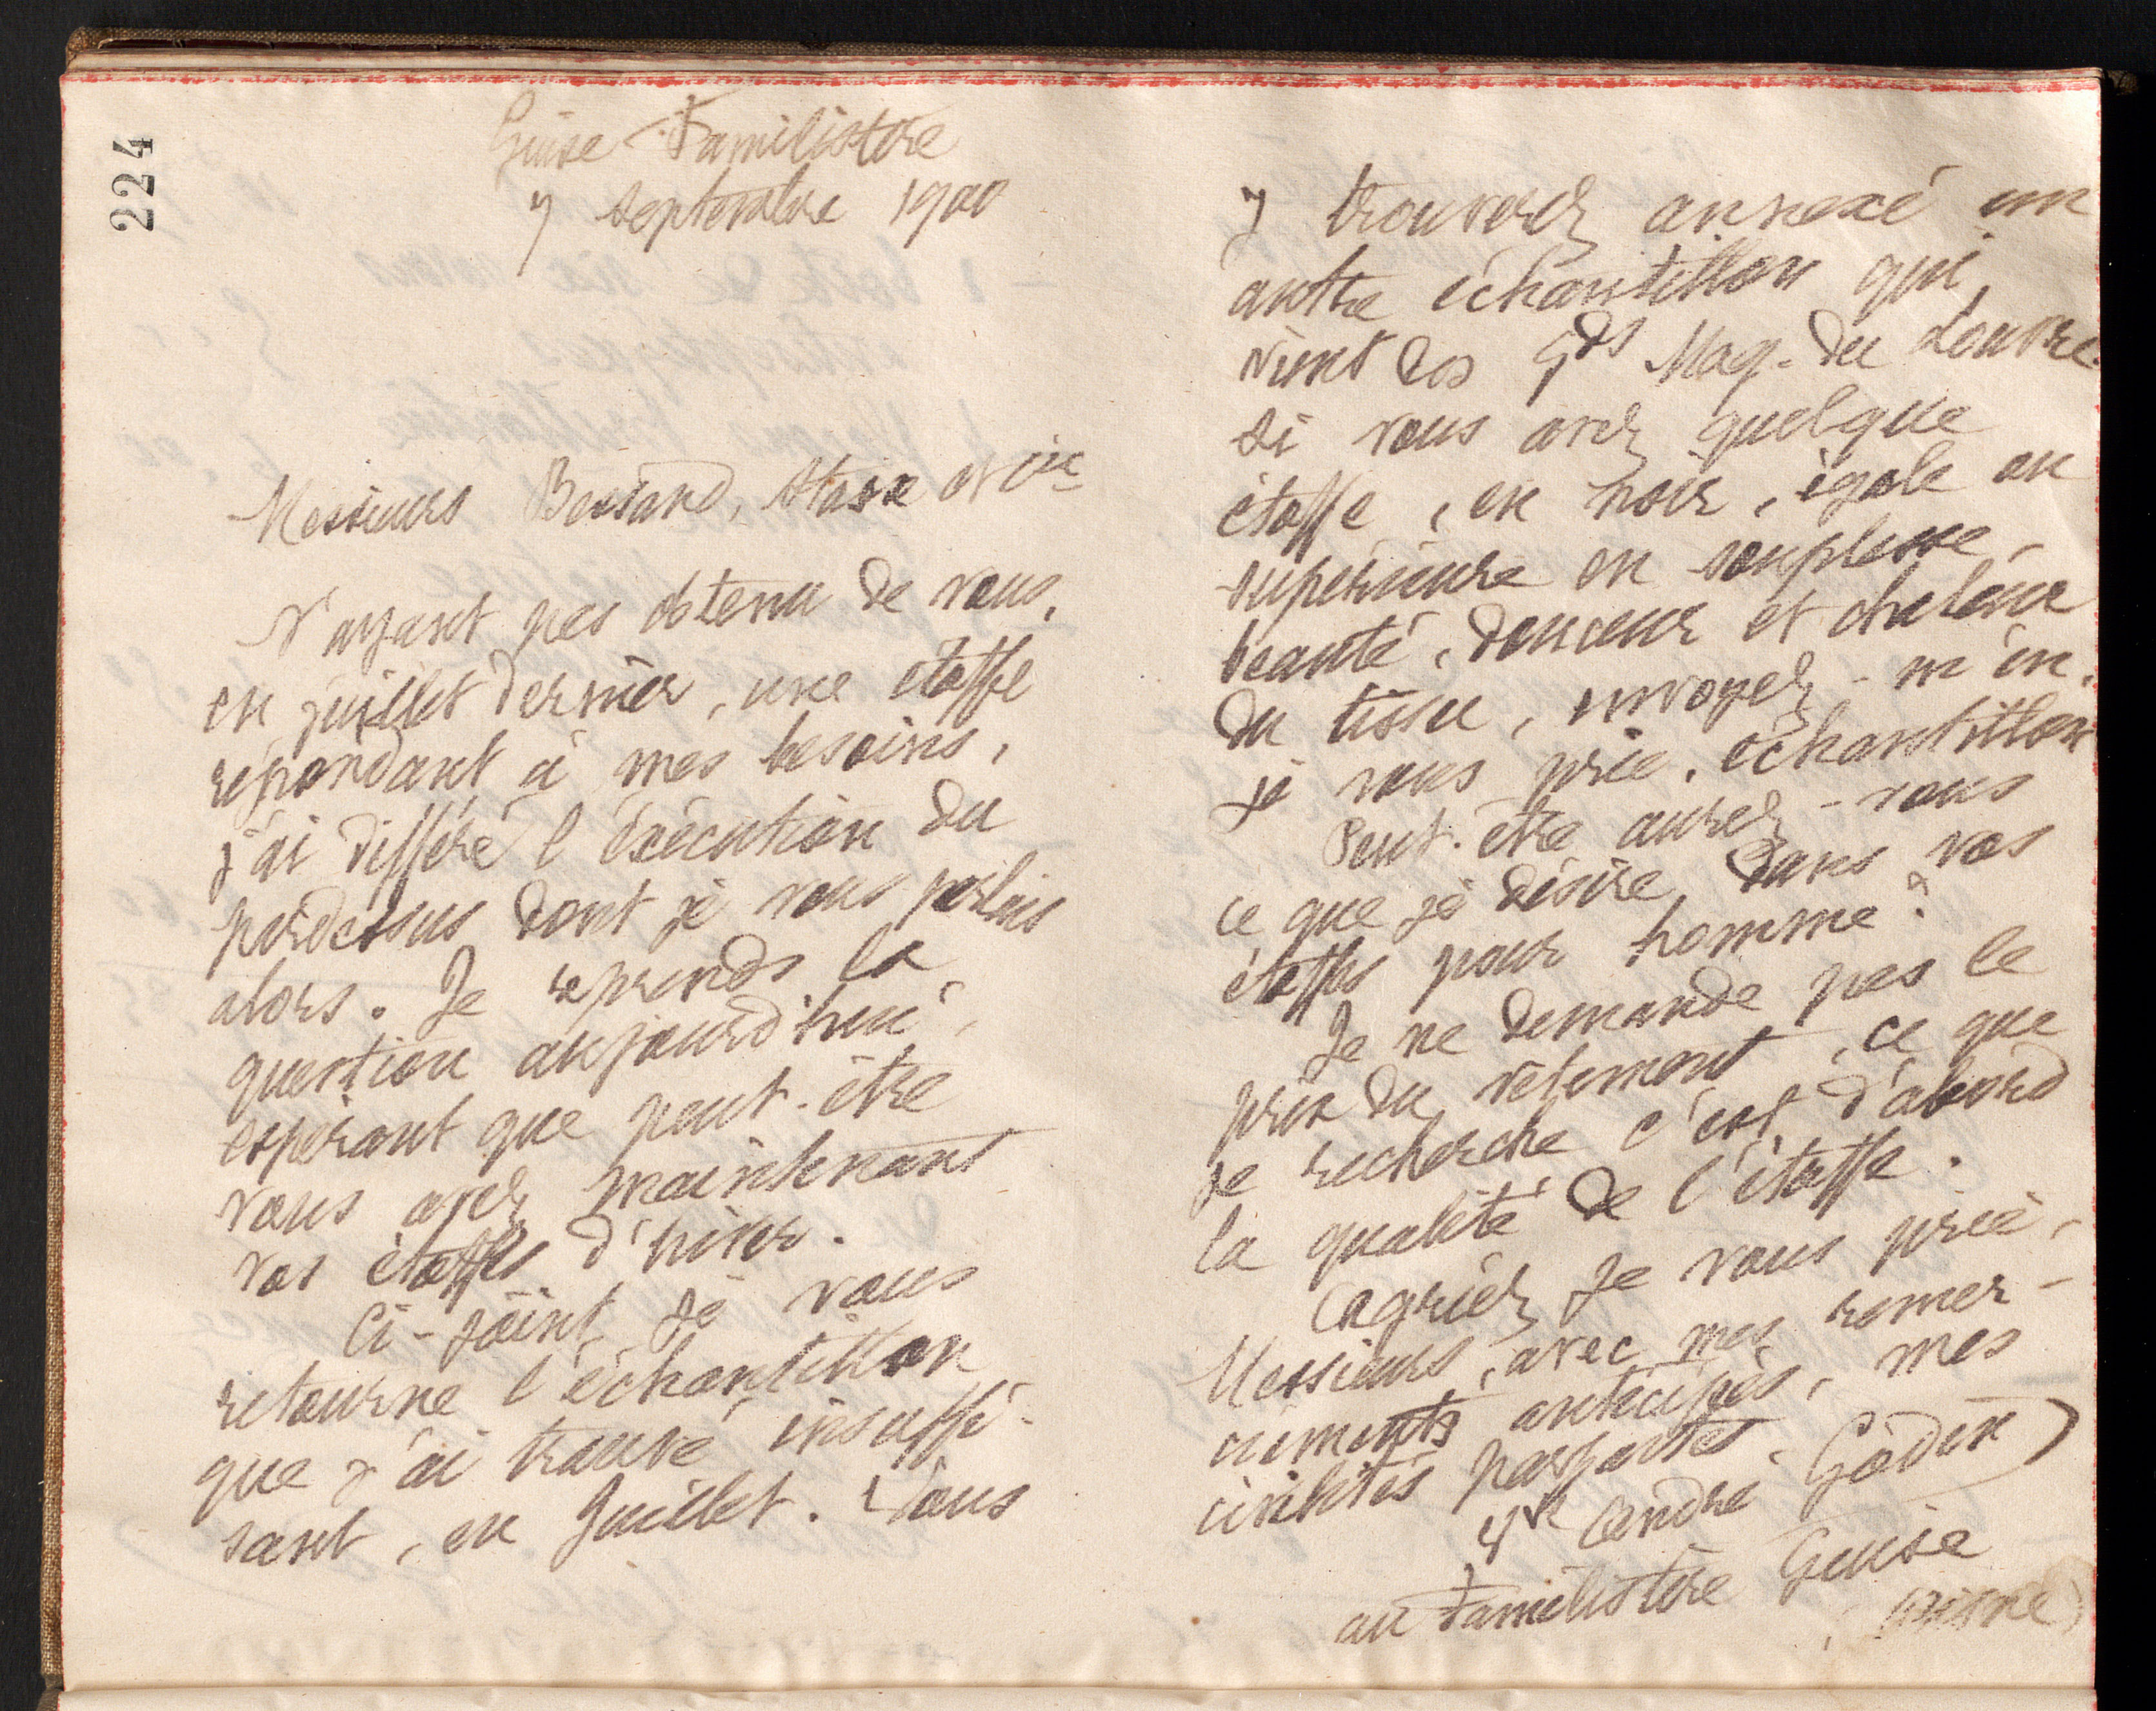 224
Guise Familistère
7 Septembre 1900
Messieurs Bessand, Stasse et Cie
N'ayant pas obtenu de vous,
en juillet dernier, une étoffe
répondant à mes besoins,
j'ai différé l'éxécution du
pardessus dont je vous parlais
alors. Je reprends la
question aujourd'hui,
espérant que peut-être
vous avez maintenant
vos étoffes d'hiver.
Ci-joint je vous
retourne l'échantillon
que j'ai trouvé insuffi-
sant, en Juillet. Vous
y trouverez annexé un
autre échantillon qui
vient des Gds Mag. du Louvre.
Si vous avez quelque
étoffe, en noir, égale ou
supérieure en souplesse,
beauté, douceur et chaleur
du tissu, envoyez-m'en,
je vous prie, échantillon
Peut-être aurez-vous
ce que je désire dans vos
étoffes pour homme?
Je ne demande pas le
prix du vêtement, ce que
je recherche c'est d'abord
la qualité de l'étoffe.
Agréez je vous prie,
Messieurs, avec mes remer-
ciements anticipés, mes
civilités parfaites.
Vve André Godin
au Familistère Guise
(Aisne)